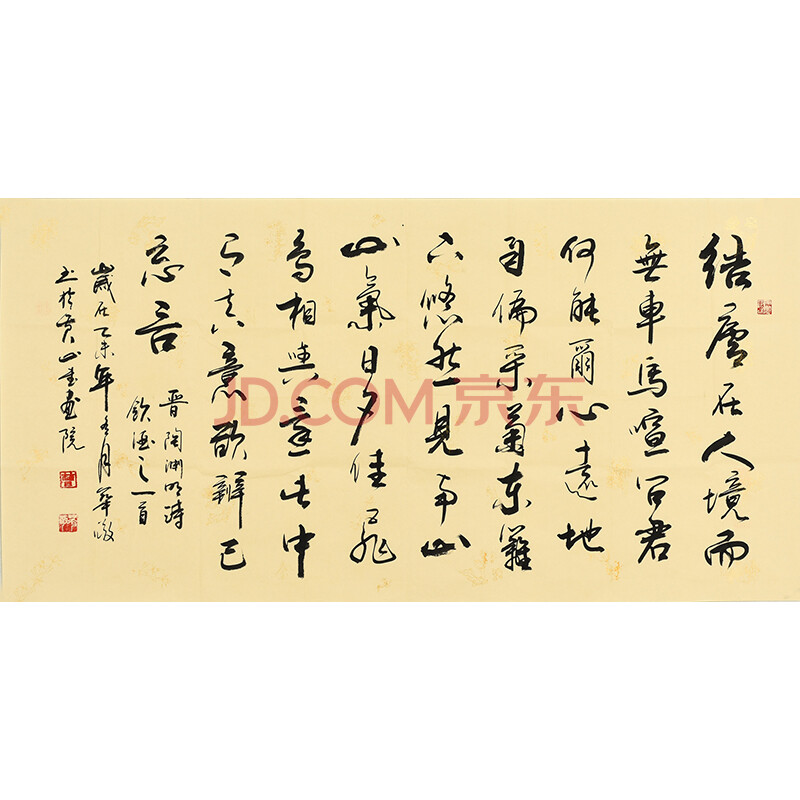 結廬在人境而
無車馬喧問君
何能爾心遠地
自偏采菊東籬
下悠然見南山
山氣日夕佳飛
鳥相與還此中
有真意欲辨已
忘言
晋陶淵明詩
飲酒之一首
歲在乙未年月華
書於黄山書畫院
JD.COM 京东